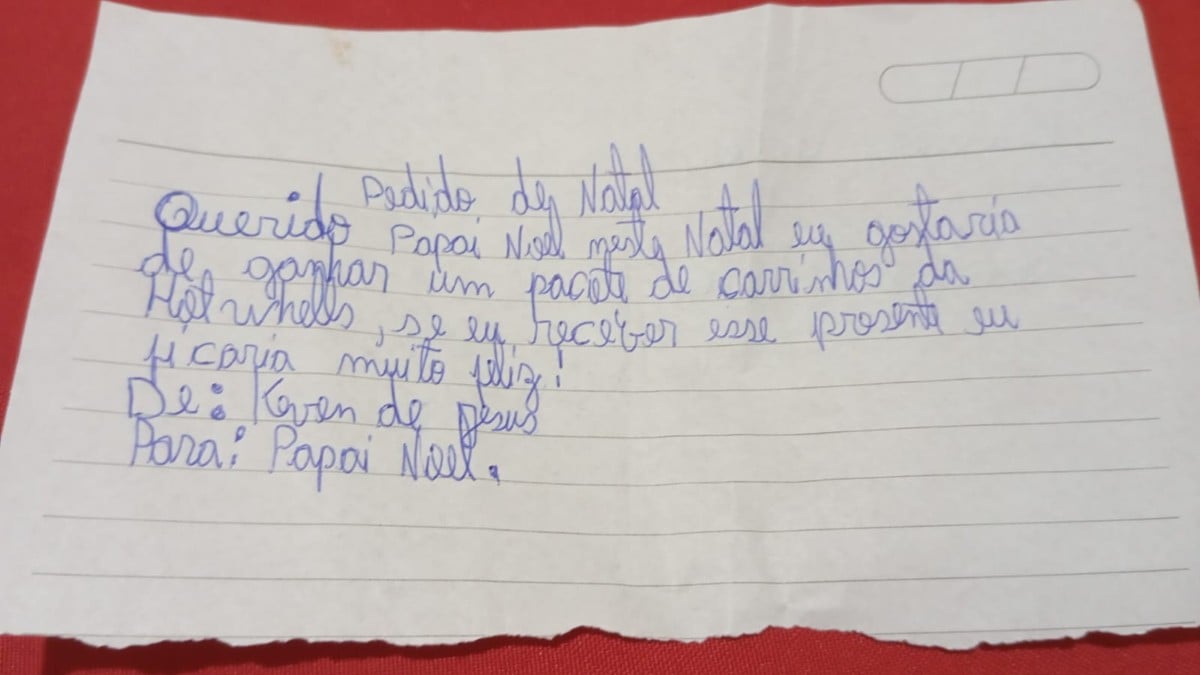 Pedido de Natal
Querido Papai Noel neste Natal eu gostaria
de ganhar um pacote de carrinhos da
Hot whells, se eu receber esse presente eu
ficaria muito feliz!
De: Keven de Jesus
Para: Papai Noel.